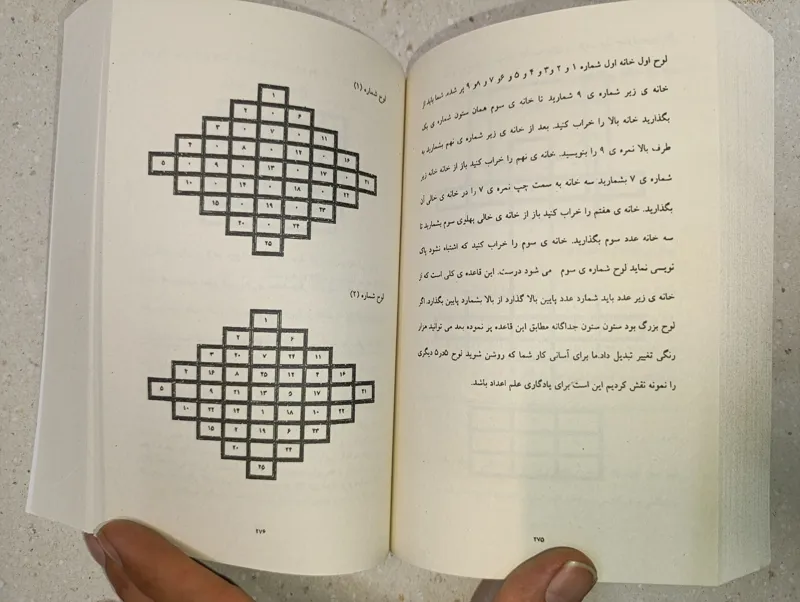 لوح اول خانه اول شماره ۱ و ۲ و۳ و ۴ و ۵ و ۶و ۷ و ۸و ۹ پر شده. شما باید از
خانه ی زیر شماره ی ۹ شمارید تا خانه ی سوم همان ستون شماره ی یک
بگذارید خانه بالا را خراب کنید. بعد از خانه ی زیر شماره ی نهم بشمارید به
طرف بالا نمره ی ۹ را بنویسید. خانه ی نهم را خراب کنید باز از خانه خانه زیر
شماره ی ۷ بشمارید سه خانه به سمت چپ نمره ی ۷ را در خانه ی خالی آن
بگذارید. خانه ی هفتم را خراب کنید باز از خانه ی خالی پهلوی سوم بشمارید تا
سه خانه عدد سوم بگذارید. خانه ی سوم را خراب کنید که اشتباه نشود پاک
نویسی نماید لوح شماره ی سوم می شود درست. این قاعده ی کلی است که از
خانه ی زیر عدد باید شمارد عدد پایین بالا گذارد از بالا بشمارد پایین بگذارد. اگر
لوح بزرگ بود ستون ستون جداگانه مطابق این قاعده پر نموده بعد می توانید هزار
رنگی تغییر تبدیل داد.ما برای آسانی کار شما که روشن شوید لوح ۵در۵ دیگری
را نمونه نقش کردیم این است برای یادگاری علم اعداد باشد.
۲۷۵
لوح شماره (۱)
۱
۲ ۰ ۶
۳ ۰ ۷ ۰ ۱۱
۴ ۰ ۸ ۰ ۱۲ ۰ ۱۶
۵ ۰ ۹ ۰ ۱۳ ۰ ۱۷ ۰ ۲۱
۱۰ ۰ ۱۴ ۰ ۱۸ ۰ ۲۲
۱۵ ۰ ۱۹ ۰ ۲۳
۲۰ ۰ ۲۴
۲۵
لوح شماره (۲)
۱
۲ ۶
۳ ۲۰ ۷ ۲۴ ۱۱
۲ ۱۶ ۸ ۲۵ ۱۲ ۴ ۱۶
۵ ۹ ۲۱ ۱۳ ۵ ۱۷ ۲۱
۱۰ ۲۲ ۱۴ ۱ ۱۸ ۱۰ ۲۲
۱۵ ۲ ۱۹ ۶ ۲۳
۲۰ ۲۲
۲۵
۲۷۶